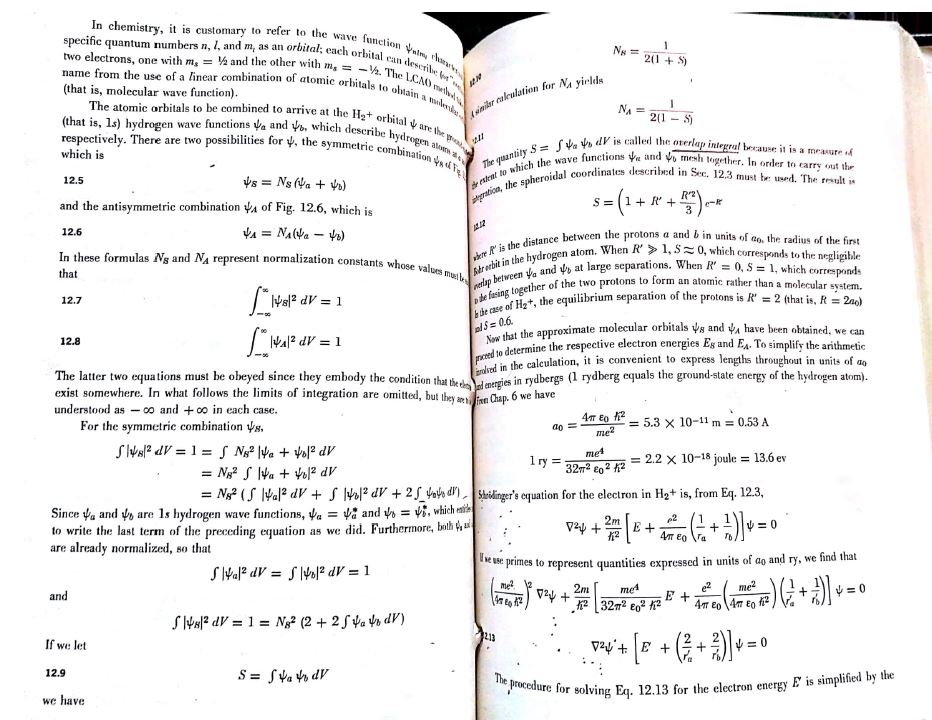 In chemistry, it is customary to refer to the wave function ψnlm, charac
specific quantum numbers n, l, and m, as an orbital; each orbital can describe
two electrons, one with ms = ½ and the other with ms = −½. The LCAO method
name from the use of a linear combination of atomic orbitals to obtain a molecular
(that is, molecular wave function).
The atomic orbitals to be combined to arrive at the H2+ orbital ψ are the
(that is, 1s) hydrogen wave functions ψa and ψb, which describe hydrogen atoms
respectively. There are two possibilities for ψ, the symmetric combination ψS of Fig.
which is
12.5 ψS = NS (ψa + ψb)
and the antisymmetric combination ψA of Fig. 12.6, which is
12.6 ψA = NA(ψa − ψb)
In these formulas NS and NA represent normalization constants whose values must be
that
12.7 ∫−∞^∞ |ψS|² dV = 1
12.8 ∫−∞^∞ |ψA|² dV = 1
The latter two equations must be obeyed since they embody the condition that the
exist somewhere. In what follows the limits of integration are omitted, but they are
understood as − ∞ and + ∞ in each case.
For the symmetric combination ψS,
∫|ψS|² dV = 1 = ∫ NS² |ψa + ψb|² dV
= NS² ∫ |ψa + ψb|² dV
= NS² (∫ |ψa|² dV + ∫ |ψb|² dV + 2∫ ψaψb dV)
Since ψa and ψb are 1s hydrogen wave functions, ψa = ψa* and ψb = ψb*, which
to write the last term of the preceding equation as we did. Furthermore, both ψa
are already normalized, so that
∫ |ψa|² dV = ∫ |ψb|² dV = 1
and
∫ |ψS|² dV = 1 = NS² (2 + 2 ∫ ψa ψb dV)
If we let
12.9 S = ∫ ψa ψb dV
we have
12.10 NS = 1/2(1 + S)
A similar calculation for NA yields
12.11 NA = 1/2(1 − S)
The quantity S = ∫ ψa ψb dV is called the overlap integral because it is a measure of
the extent to which the wave functions ψa and ψb mesh together. In order to carry out the
integration, the spheroidal coordinates described in Sec. 12.3 must be used. The result is
12.12 S = (1 + R' + R'²/3) e−R'
where R' is the distance between the protons a and b in units of a0, the radius of the first
Bohr orbit in the hydrogen atom. When R' ≫ 1, S ≈ 0, which corresponds to the negligible
overlap between ψa and ψb at large separations. When R' = 0, S = 1, which corresponds
to the fusing together of the two protons to form an atomic rather than a molecular system.
In the case of H2+, the equilibrium separation of the protons is R' = 2 (that is, R = 2a0)
and S = 0.6.
Now that the approximate molecular orbitals ψS and ψA have been obtained, we can
proceed to determine the respective electron energies ES and EA. To simplify the arithmetic
involved in the calculation, it is convenient to express lengths throughout in units of a0
and energies in rydbergs (1 rydberg equals the ground-state energy of the hydrogen atom).
From Chap. 6 we have
a0 = 4π ε0 ħ²/me² = 5.3 × 10−11 m = 0.53 A
1 ry = me⁴/32π² ε0² ħ² = 2.2 × 10−18 joule = 13.6 ev
Schrödinger's equation for the electron in H2+ is, from Eq. 12.3,
∇²ψ + 2m/ħ² [E + e²/4π ε0 (1/ra + 1/rb)] ψ = 0
If we use primes to represent quantities expressed in units of a0 and ry, we find that
(me²/4π ε0 ħ²)² ∇²ψ + 2m/ħ² [me⁴/32π² ε0² ħ² E' + e²/4π ε0 (me²/4π ε0 ħ²) (1/r'a + 1/r'b)] ψ = 0
12.13 ∇²ψ + [E' + (2/r'a + 2/r'b)] ψ = 0
The procedure for solving Eq. 12.13 for the electron energy E' is simplified by the